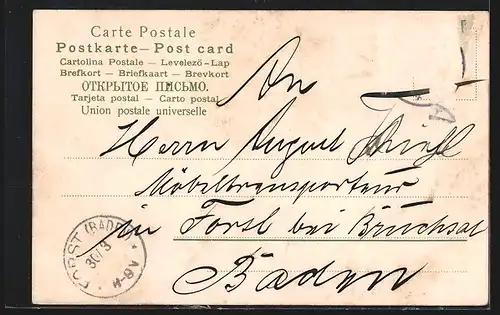 Carte Postale
Postkarte — Post card
Cartolina Postale — Levelező-Lap
Brefkort — Briefkaart — Brevkort
ОТКРЫТОЕ ПИСЬМО.
Tarjeta postal — Carto postal
Union postale universelle
An
Herrn August
Möbeltransporteur
in Forst bei Bruchsal
Baden
FORST (BADEN)